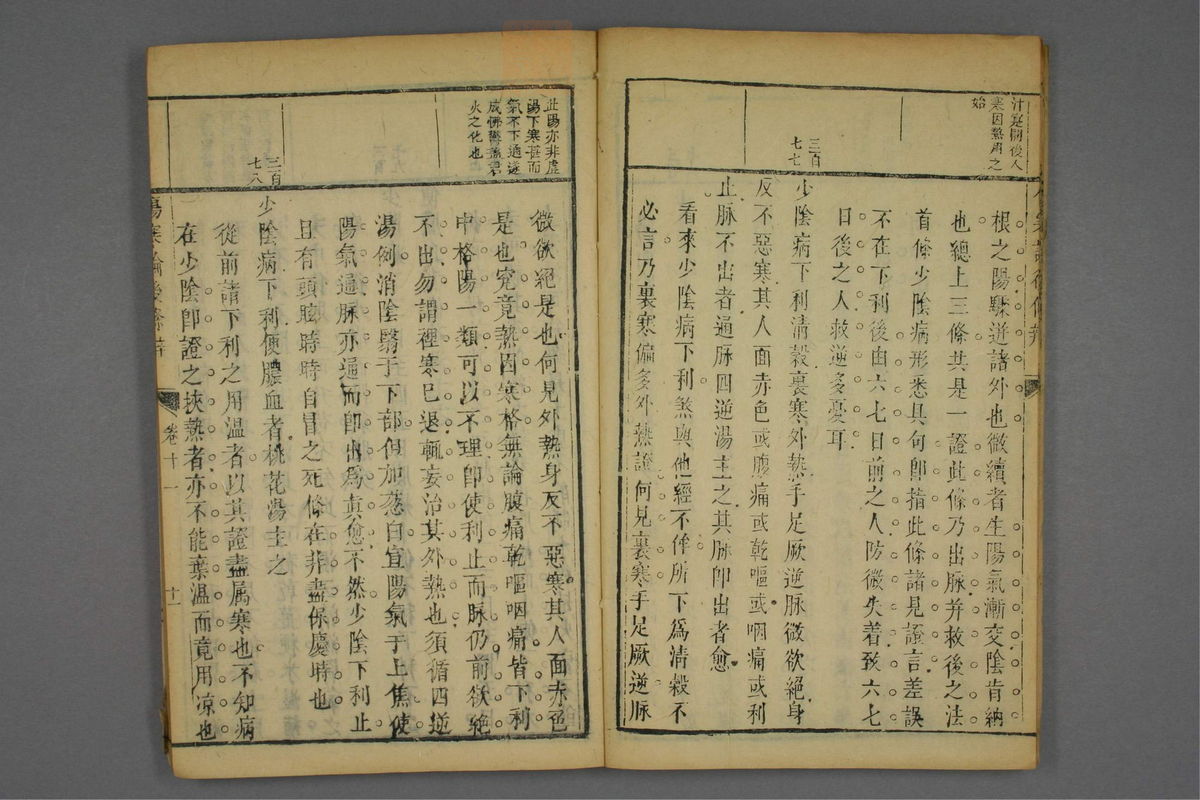 汁寔開後人
寒因熱用之
始
根之陽驟逆諸外也微續者生陽氣漸交陰肯納
也總上三條共是一證此條乃出脉并救後之法
首條少陰病形悉具句即指此條諸見證言差誤
不在下利後由六七日前之人防微失着致六七
日後之人救逆多憂耳
三百
七七
少陰病下利清穀裏寒外熱手足厥逆脉微欲絕身
反不惡寒其人面赤色或腹痛或乾嘔或咽痛或利
止脉不出者通脉四逆湯主之其脉即出者愈
看來少陰病下利煞與他經不侔所下為清穀不
必言乃裏寒偏多外熱證何見裏寒手足厥逆脉
此陽亦非虛
陽下寒甚而
氣不下通遂
成怫鬱
火之化也
微欲絕是也何見外熱身反不惡寒其人面赤色
是也究竟熱因寒格無論腹痛乾嘔咽痛皆下利
中格陽一類可以不理即使利止而脉仍前欲絕
不出勿謂裡寒已退輒妄治其外熱也須循四逆
湯例消陰翳于下部但加葱白宜陽氣于上焦使
陽氣通脉亦通而即出為真愈不然少陰下利止
且有頭眩時時自冒之死條在非盡保慶時也
三百
七八
少陰病下利便膿血者桃花湯主之
從前諸下利之用溫者以其證盡属寒也不知病
在少陰即證之挾熱者亦不能棄溫而竟用凉也
傷寒論後條辨
卷十一
十一